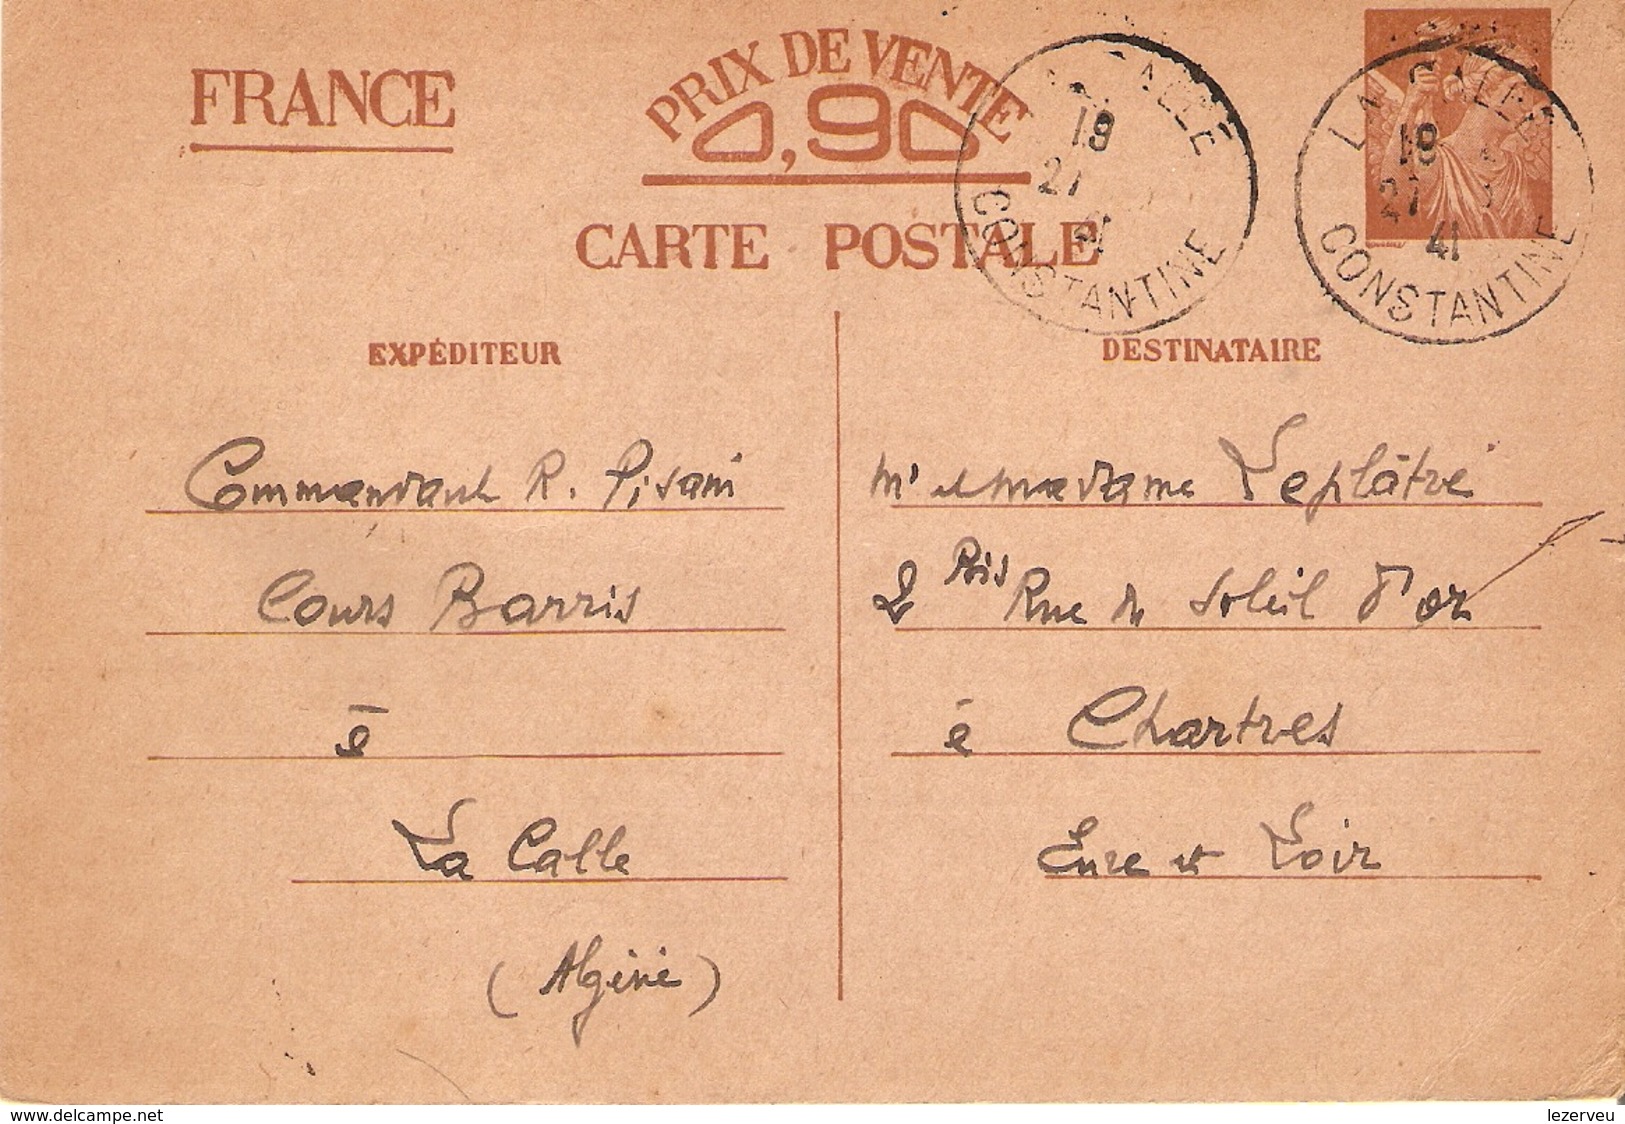 FRANCE
PRIX DE VENTE
0,90
CARTE POSTALE
LA CALLE
18
27
41
CONSTANTINE
LA CALLE
18
27 3
41
CONSTANTINE
EXPÉDITEUR
Commandant R. Pisani
Cours Barris
à
La Calle
(Algérie)
DESTINATAIRE
Mr et Madame Leplâtre
2 Bis Rue du Soleil d'or
à Chartres
Eure et Loir
www.delcampe.net
lezerveu